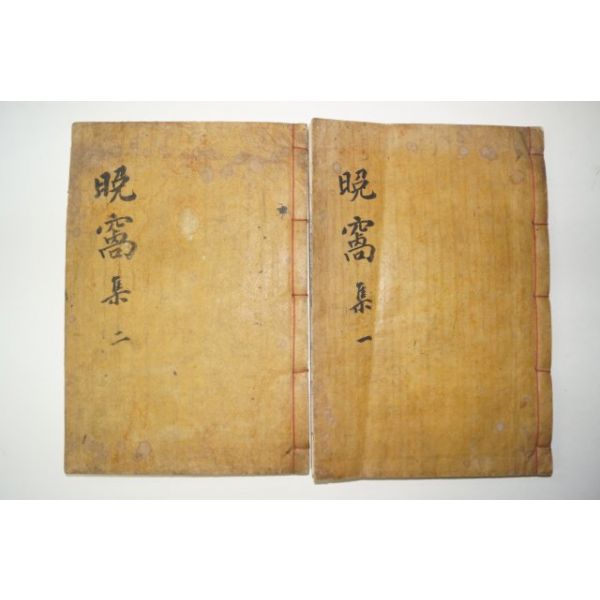 晩窩集一
晩窩集二